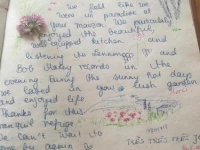 We felt like we
were in paradise at
your maison. We particularly
enjoyed the beautiful,
equipped kitchen and
listening to and
Bob Marley records in the
evening. During the sunny hot days
we lazed in your lush garden
and enjoyed life
Thanks for this
tranquil refuge
We can't wait to
come by again
TRÈS TRÈS